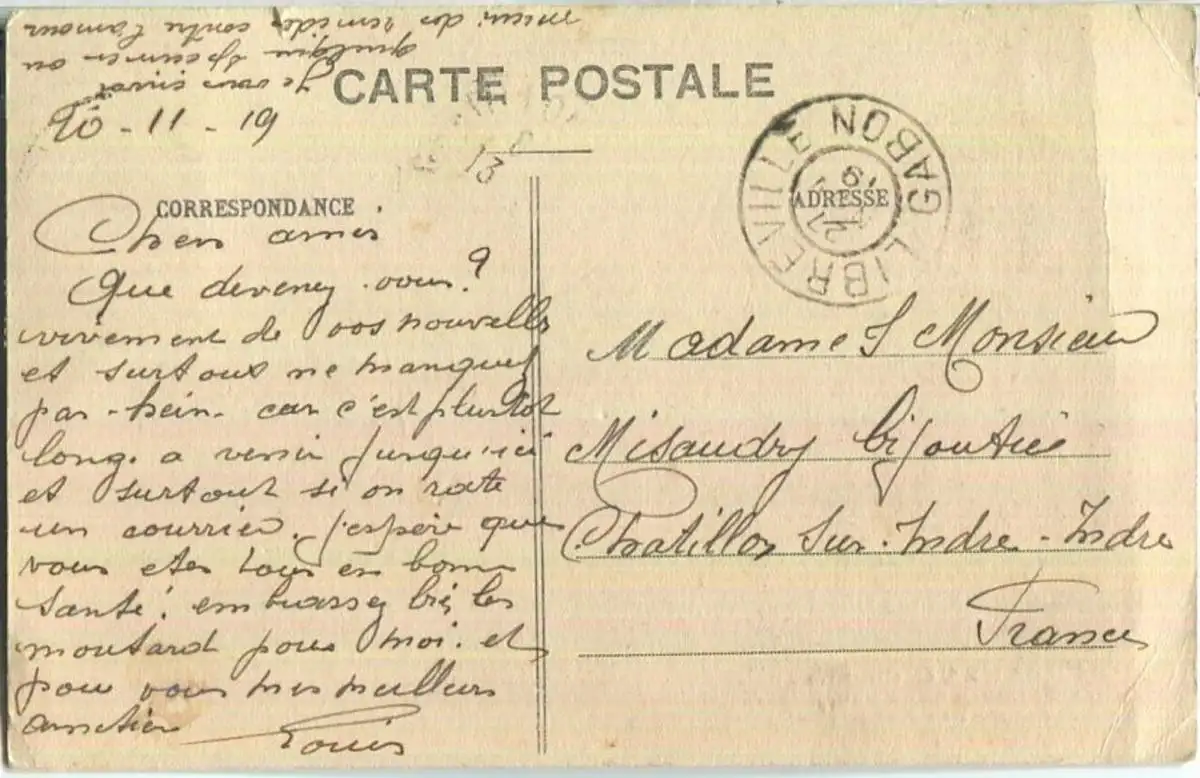 CARTE POSTALE
20 - 11 - 19
CORRESPONDANCE
Chers amis
Que devenez vous?
vivement de vos nouvelles
et surtout ne manquez
pas - hein - car c'est plustot
long a venir jusqu'ici
et surtout si on rate
un courrier. j'espère que
vous etes tous en bonne
santé. embrassez bie les
moutard pour moi. et
pour vous mes meilleurs
amitiés Louis
Je vous envoi
quelque specimen ou
mieux des remèdes contre l'amour
LIBREVILLE GABON
ADRESSE
Madame & Monsieur
Misaudry bijoutier
Chatillon sur-Indre - Indre
France